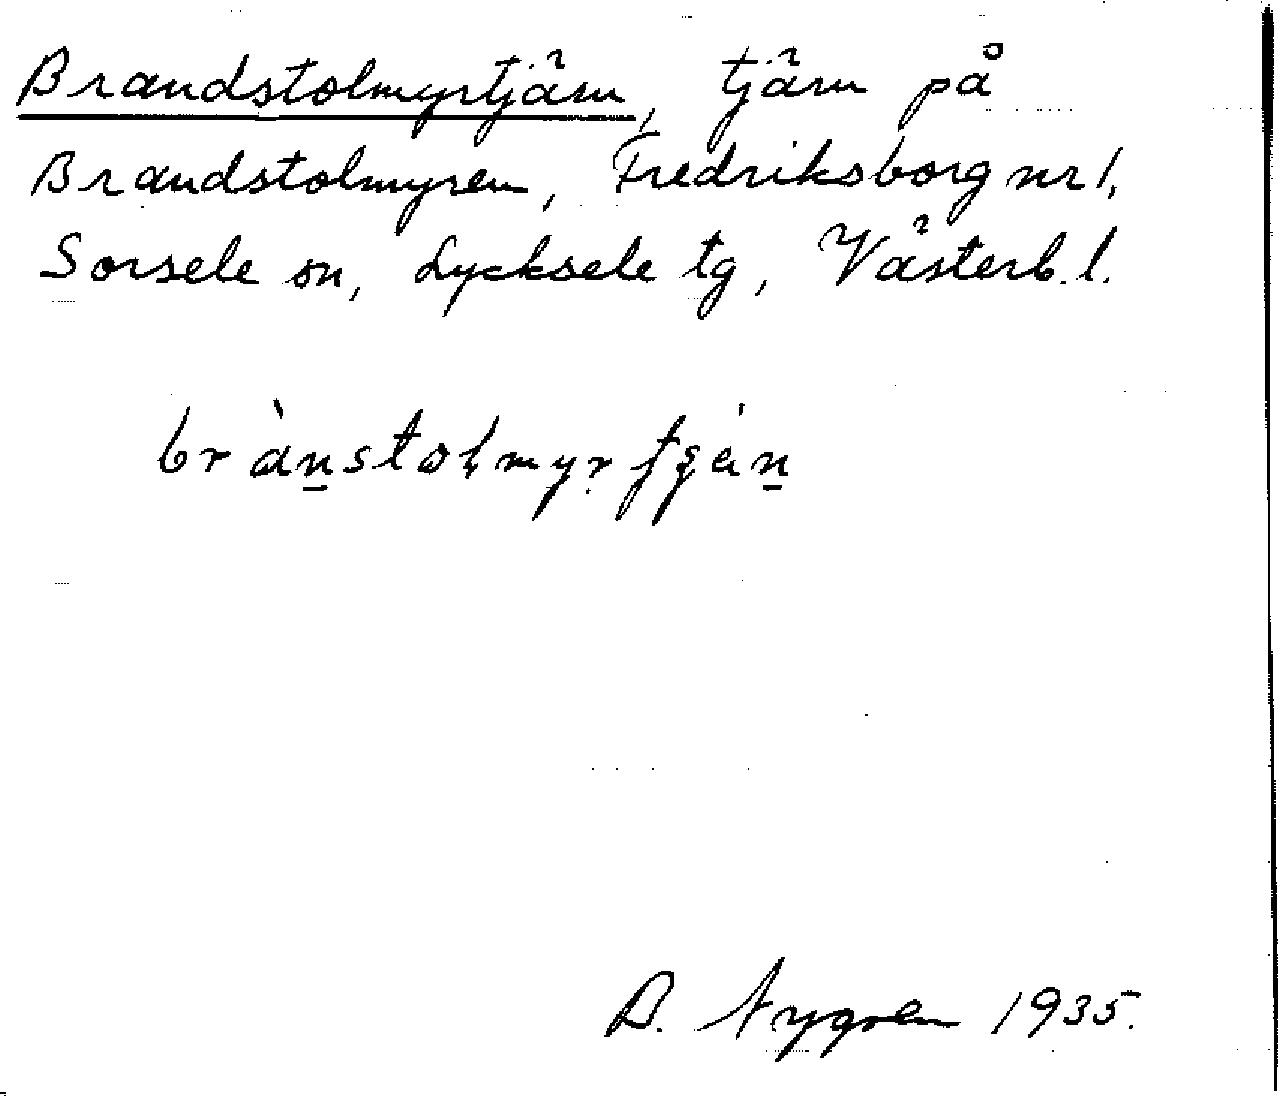 Brandstolmyrtjärn, tjärn på
Brandstolmyren, Fredriksborg nr 1,
Sorsele sn, Lycksele tg, Västerb. l.
B. Nygren 1935.